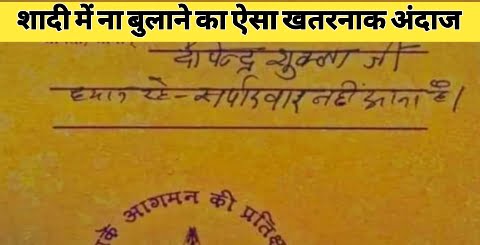 शादी में ना बुलाने का ऐसा खतरनाक अंदाज
दीपेन्द्र शुक्ला जी
ध्यान रहे - सपरिवार नहीं आना है।
के आगमन की प्रतिक्ष